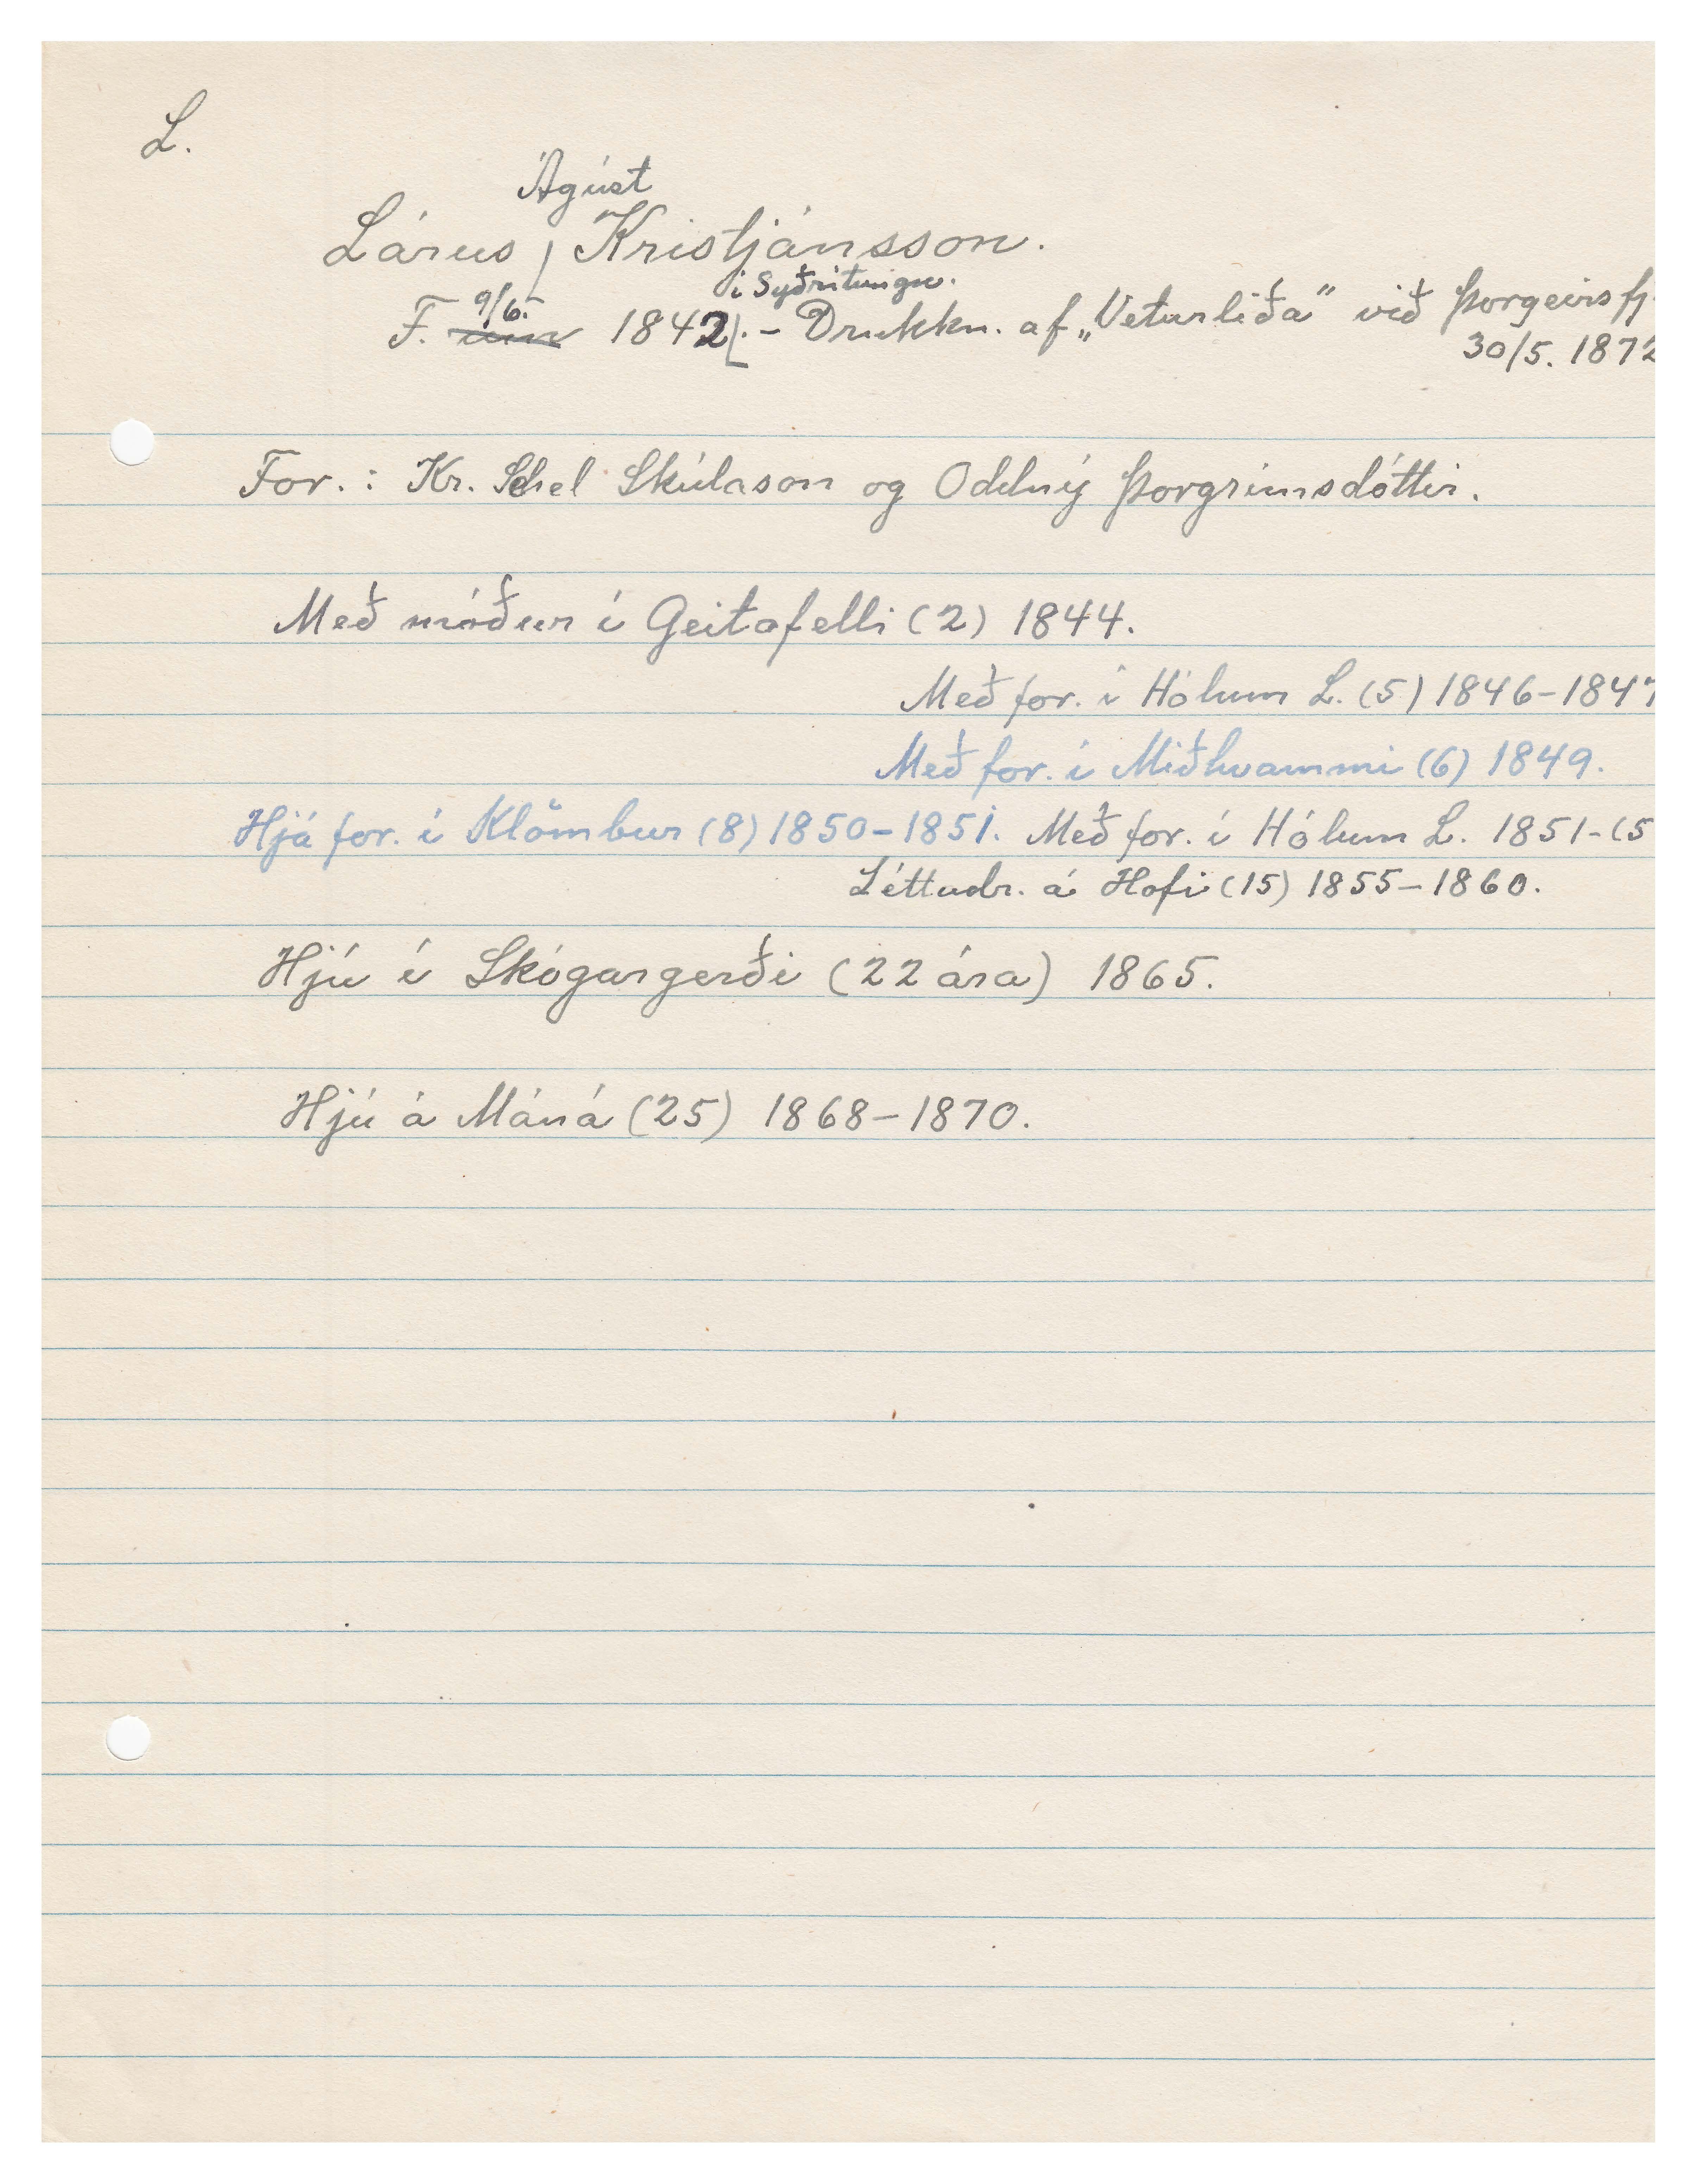 L.
Ágúst
Lárus / Kristjánsson.
í Syðritungu.
9/6.
F. um 1842. - Drukkn. af „Veturliða" við Þorgeirsfj.
30/5. 1872
For.: Kr. Schel Skúlason og Oddný Þorgrímsdóttir.
Með móður í Geitafelli (2) 1844.
Með for. í Hólum L. (5) 1846-1847
Með for. í Miðhvammi (6) 1849.
Hjá for. í Klömbur (8) 1850-1851. Með for. í Hólum L. 1851-(5
Léttadr. á Hofi (15) 1855-1860.
Hjú í Skógargerði (22 ára) 1865.
Hjú á Máná (25) 1868-1870.